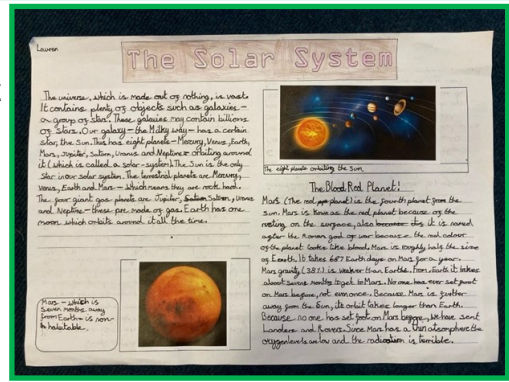 Lauren
The Solar System
The universe, which is made out of nothing, is vast.
It contains plenty of objects such as galaxies –
a group of stars. These galaxies may contain billions
of stars. Our galaxy – the Milky way – has a certain
star, the sun. This has eight planets – Mercury, Venus, Earth,
Mars, Jupiter, Saturn, Uranus and Neptune – orbiting around
it (which is called a solar-system). The Sun is the only
star in our solar system. The terrestrial planets are Mercury,
Venus, Earth and Mars – which means they are rock hard.
The four giant gas planets are Jupiter, Saturn, Uranus
and Neptune – these are made of gas. Earth has one
moon which orbits around it all the time.
Mars – which is
seven months away
from Earth – is non-
habitable.
The eight planets orbiting the Sun.
The Blood Red Planet!
Mars (The red planet) is the fourth planet from the
sun. Mars is know as the red planet because of the
rusting on the surface, also it is named
after the Roman god of war because the red colour
of the planet looks like blood. Mars is roughly half the size
of Earth. It takes 687 Earth days on Mars for a year.
Mars gravity (38%) is weaker than Earths. From Earth it takes
about seven months to get to Mars. No one has ever set foot
on Mars before, not even once. Because Mars is further
away from the Sun, its orbit takes longer than Earth.
Because no one has set foot on Mars before, we have sent
Landers and Rovers. Since Mars has a thin atmosphere the
oxygen levels are low and the radiation is terrible.